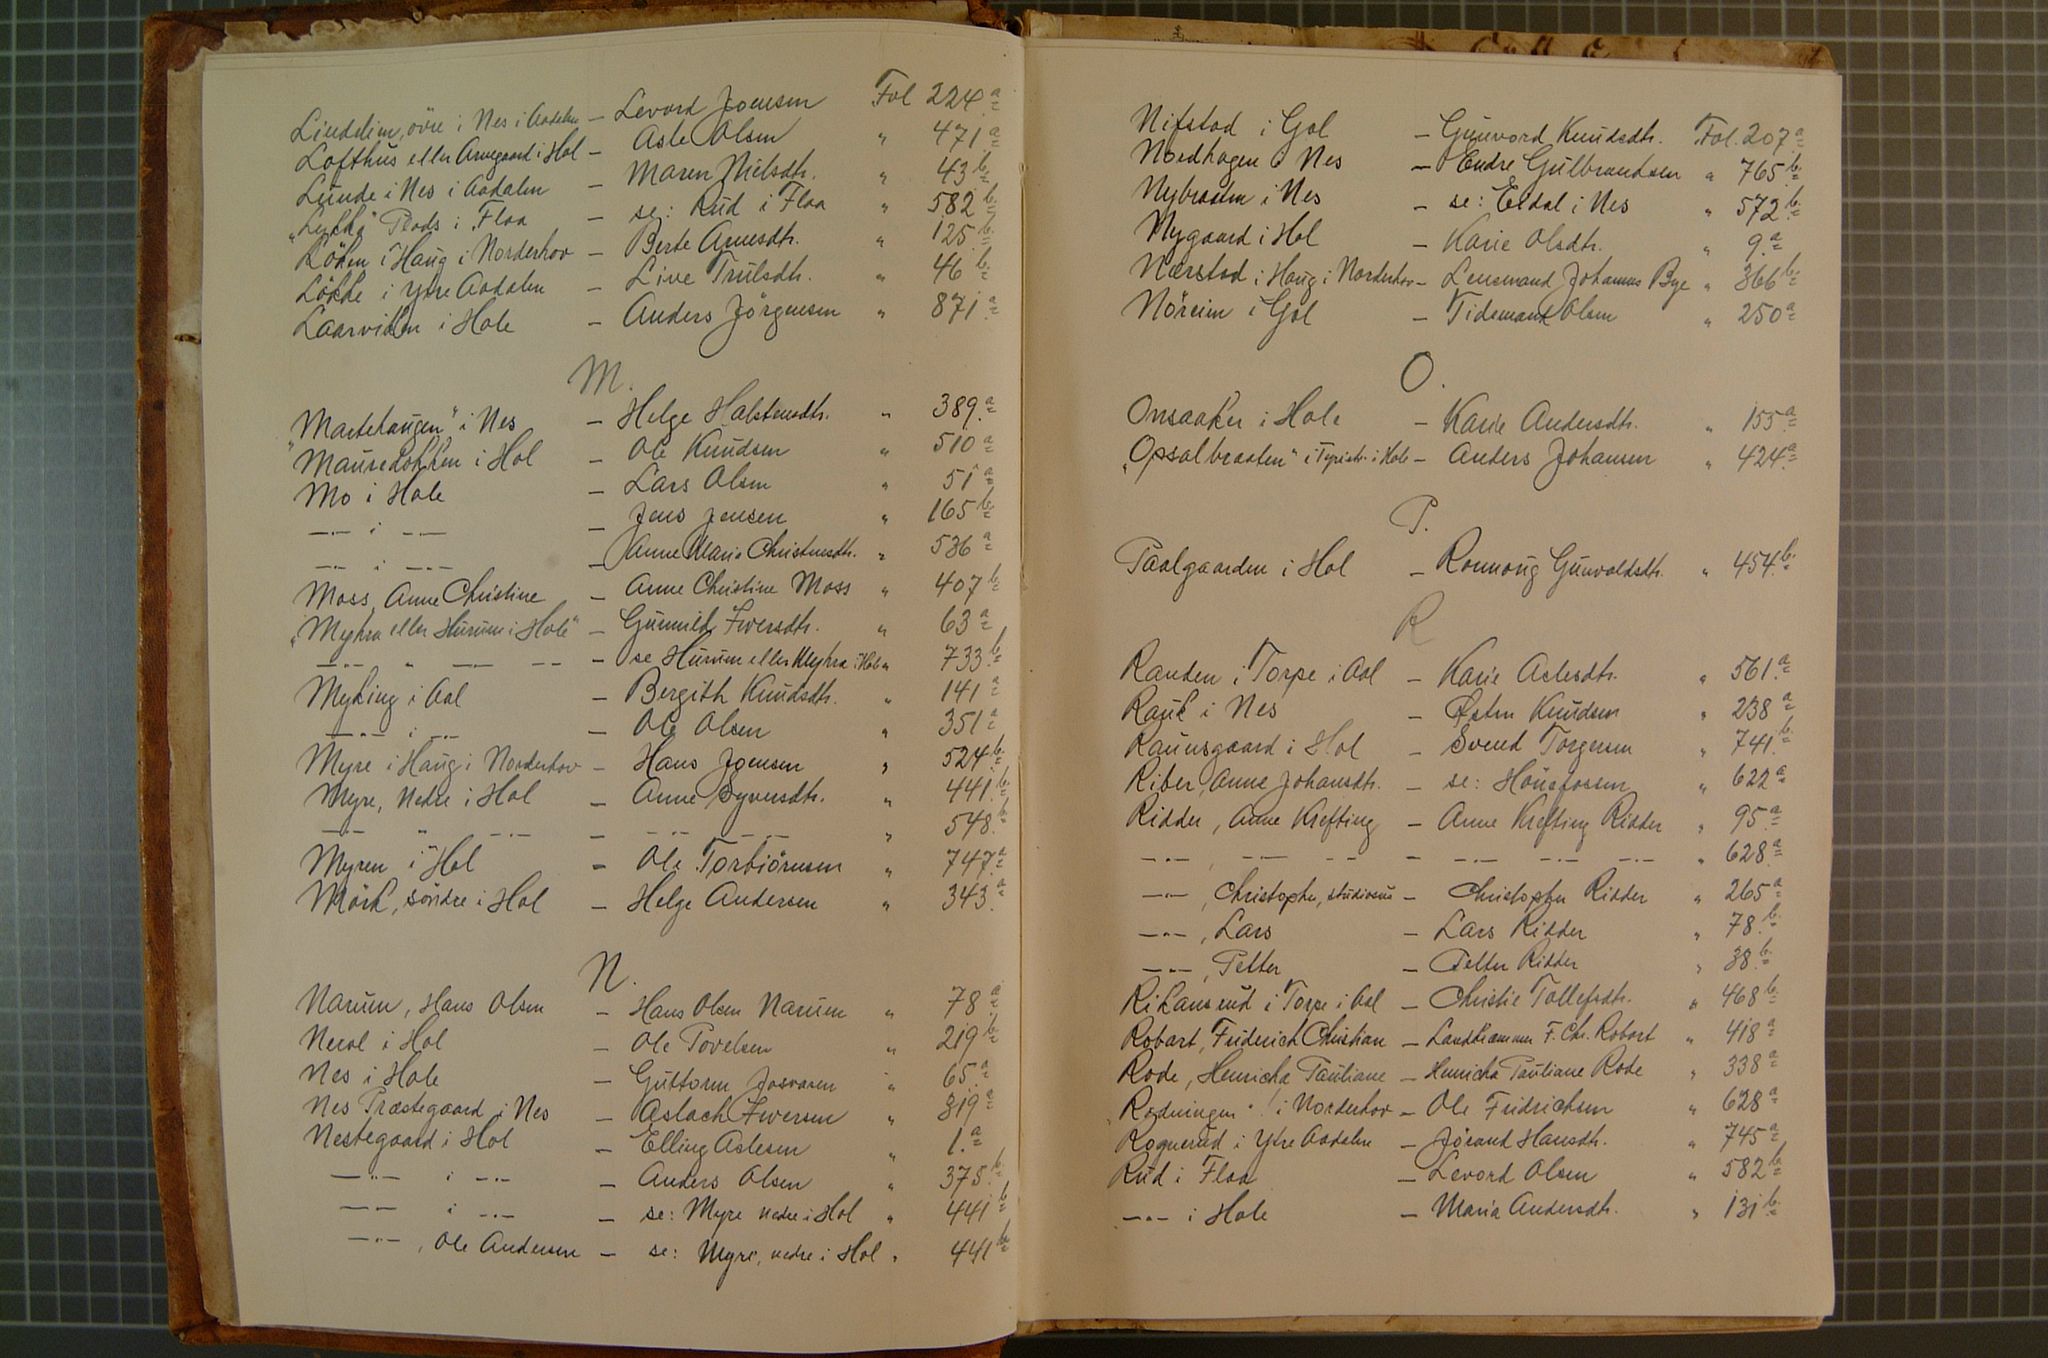 Lindelien, övre i Nes i Aadalen – Levord Joensen Fol 224 a
Lofthus eller Arnegaard i Hol – Asle Olsen " 471 a
Lunde i Nes i Aadalen – Maren Nielsdtr. " 43 b
"Lykkja" Plads i Flaa – se: Rud i Flaa " 582 b
Löken i Haug i Norderhov – Berte Arnesdtr. " 125 b
Lökke i Ytre Aadalen – Live Trulsdtr. " 46 b
Laarviken i Hole – Anders Jörgensen " 871 a
M.
"Martehaugen" i Nes – Helge Halstensdtr. " 389 a
"Mauredokken i Hol – Ole Knudsen " 510 a
Mo i Hole – Lars Olsen " 51 a
–"– i –"– – Jens Jensen " 165 b
–"– i –"– – Anne Marie Christensdtr. " 536 a
Moss, Anne Christine – Anne Christine Moss " 407 b
"Myhra eller Hurum i Hole" – Gunnild Iversdtr. " 63 a
–"– " –"– –"– – se Hurum eller Myhra i Hole " 733 b
Myking i Aal – Bergith Knudsdtr. " 141 a
–"– i –"– – Ole Olsen " 351 a
Myre i Haug i Norderhov – Hans Joensen " 524 b
Myre, Nedre i Hol – Anne Syversdtr. " 441 b
–"– " –"– – –"– –"– " 548 b
Myren i Hol – Ole Torbiörnsen " 747 a
Mörk, söndre i Hol – Helge Andersen " 343 a
N.
Narum, Hans Olsen – Hans Olsen Narum " 78 a
Neral i Hol – Ole Povelsen " 219 b
Nes i Hole – Guttorm Josvasen " 65 a
Nes Præstegaard i Nes – Aslach Iversen " 319 a
Nestegaard i Hol – Elling Aslesen " 1. a
–"– i –"– – Anders Olsen " 375 b
–"– i –"– – se: Myre nedre i Hol " 441 b
–"–, Ole Andersen – se: Myre, nedre i Hol " 441 b
Nifstad i Gol – Gunvord Knudsdtr. Fol. 207 a
Nordhagen i Nes – Endre Gulbrandsen " 765 b
Nybraaten i Nes – se: Eidal i Nes " 572 b
Nygaard i Hol – Karie Olsdtr. " 9 a
Nærstad i Haug i Norderhov – Lensmand Johannes Bye " 366 b
Nöreim i Gol – Tidemand Olsen " 250 a
O.
Onsaaker i Hole – Karie Andersdtr. " 155 a
"Opsalbraaten" i Tyristr. i Hole – Anders Johansen " 424 a
P.
Paalgaarden i Hol – Ronnoug Gunvoldsdtr. " 454 b
R
Randen i Torpe i Aal – Karie Aslesdtr. " 561 a
Rauk i Nes – Østen Knudsen " 238 a
Raunsgaard i Hol – Svend Torgersen " 741 b
Riber, Anne Johansdtr. – se: Hönefossen " 622 a
Ridder, Anne Krefting – Anne Krefting Ridder " 95 a
–"–, –"– –"– – –"– –"– –"– " 628 a
–"–, Christopher, studiosus – Christopher Ridder " 265 a
–"–, Lars – Lars Ridder " 78 b
–"–, Petter – Petter Ridder " 38 b
Rikansrud i Torpe i Aal – Christie Tollefsdtr. " 468 b
Robart, Friderich Christian – Landkræmmer F. Chr. Robart " 418 a
Rode, Henricha Pauliane – Henricha Pauliane Rode " 338 a
"Rodningen" i Norderhov – Ole Fridrichsen " 628 a
Rognerud i Ytre Aadalen – Jörand Hansdtr. " 745 a
Rud i Flaa – Levord Olsen " 582 b
–"– i Hole – Maria Andersdtr. " 131 b